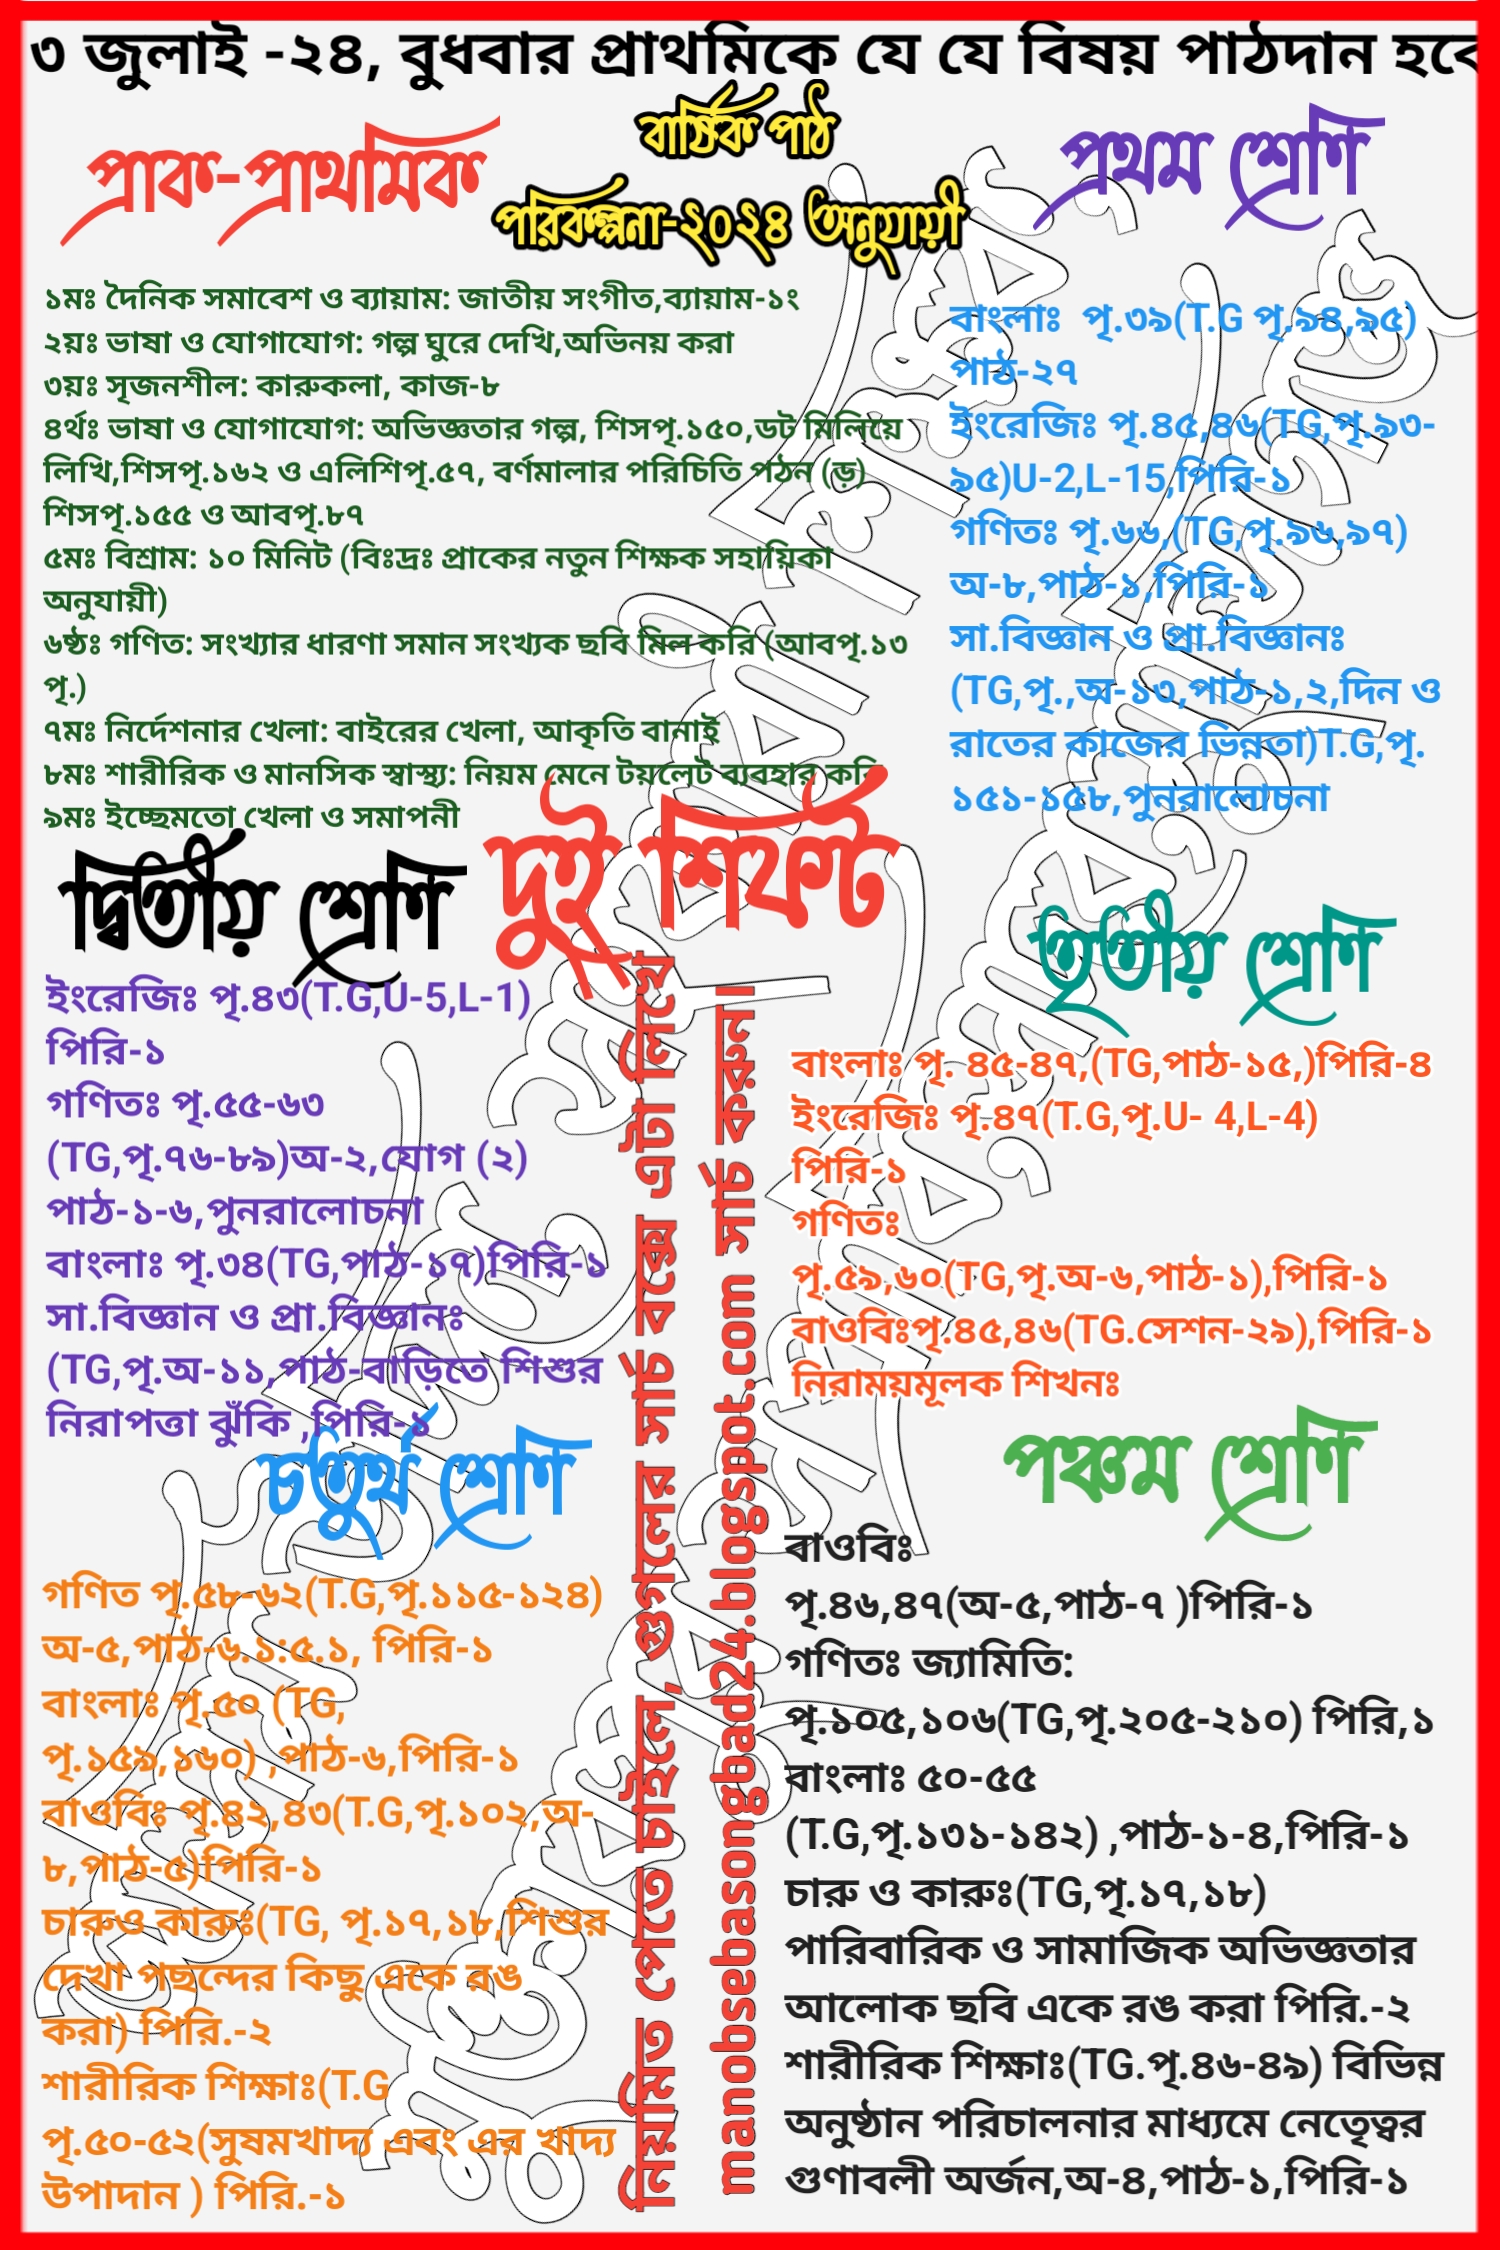 ৩ জুলাই -২৪, বুধবার প্রাথমিকে যে যে বিষয় পাঠদান হবে
বার্ষিক পাঠ
পরিকল্পনা-২০২৪ অনুযায়ী
প্রাক-প্রাথমিক
১মঃ দৈনিক সমাবেশ ও ব্যায়াম: জাতীয় সংগীত,ব্যায়াম-১ং
২য়ঃ ভাষা ও যোগাযোগ: গল্প ঘুরে দেখি,অভিনয় করা
৩য়ঃ সৃজনশীল: কারুকলা, কাজ-৮
৪র্থঃ ভাষা ও যোগাযোগ: অভিজ্ঞতার গল্প, শিসপৃ.১৫০,ডট মিলিয়ে
লিখি,শিসপৃ.১৬২ ও এলিশিপৃ.৫৭, বর্ণমালার পরিচিতি পঠন (ড়)
শিসপৃ.১৫৫ ও আবপৃ.৮৭
৫মঃ বিশ্রাম: ১০ মিনিট (বিঃদ্রঃ প্রাকের নতুন শিক্ষক সহায়িকা
অনুযায়ী)
৬ষ্ঠঃ গণিত: সংখ্যার ধারণা সমান সংখ্যক ছবি মিল করি (আবপৃ.১৩
পৃ.)
৭মঃ নির্দেশনার খেলা: বাইরের খেলা, আকৃতি বানাই
৮মঃ শারীরিক ও মানসিক স্বাস্থ্য: নিয়ম মেনে টয়লেট ব্যবহার করি
৯মঃ ইচ্ছেমতো খেলা ও সমাপনী
প্রথম শ্রেণি
বাংলাঃ পৃ.৩৯(T.G পৃ.৯৪,৯৫)
পাঠ-২৭
ইংরেজিঃ পৃ.৪৫,৪৬(TG,পৃ.৯৩-
৯৫)U-2,L-15,পিরি-১
গণিতঃ পৃ.৬৬,(TG,পৃ.৯৬,৯৭)
অ-৮,পাঠ-১,পিরি-১
সা.বিজ্ঞান ও প্রা.বিজ্ঞানঃ
(TG,পৃ.,অ-১৩,পাঠ-১,২,দিন ও
রাতের কাজের ভিন্নতা)T.G,পৃ.
১৫১-১৫৮,পুনরালোচনা
দুই শিফট
দ্বিতীয় শ্রেণি
ইংরেজিঃ পৃ.৪৩(T.G,U-5,L-1)
পিরি-১
গণিতঃ পৃ.৫৫-৬৩
(TG,পৃ.৭৬-৮৯)অ-২,যোগ (২)
পাঠ-১-৬,পুনরালোচনা
বাংলাঃ পৃ.৩৪(TG,পাঠ-১৭)পিরি-১
সা.বিজ্ঞান ও প্রা.বিজ্ঞানঃ
(TG,পৃ.অ-১১,পাঠ-বাড়িতে শিশুর
নিরাপত্তা ঝুঁকি ,পিরি-১
তৃতীয় শ্রেণি
বাংলাঃ পৃ. ৪৫-৪৭,(TG,পাঠ-১৫,)পিরি-৪
ইংরেজিঃ পৃ.৪৭(T.G,পৃ.U- 4,L-4)
পিরি-১
গণিতঃ
পৃ.৫৯,৬০(TG,পৃ.অ-৬,পাঠ-১),পিরি-১
বাওবিঃপৃ.৪৫,৪৬(TG.সেশন-২৯),পিরি-১
নিরাময়মূলক শিখনঃ
চতুর্থ শ্রেণি
গণিত পৃ.৫৮-৬২(T.G,পৃ.১১৫-১২৪)
অ-৫,পাঠ-৬.১:৫.১, পিরি-১
বাংলাঃ পৃ.৫০ (TG,
পৃ.১৫৯,১৬০) ,পাঠ-৬,পিরি-১
বাওবিঃ পৃ.৪২,৪৩(T.G,পৃ.১০২,অ-
৮,পাঠ-৫)পিরি-১
চারুও কারুঃ(TG, পৃ.১৭,১৮,শিশুর
দেখা পছন্দের কিছু একে রঙ
করা) পিরি.-২
শারীরিক শিক্ষাঃ(T.G
পৃ.৫০-৫২(সুষমখাদ্য এবং এর খাদ্য
উপাদান ) পিরি.-১
পঞ্চম শ্রেণি
বাওবিঃ
পৃ.৪৬,৪৭(অ-৫,পাঠ-৭ )পিরি-১
গণিতঃ জ্যামিতি:
পৃ.১০৫,১০৬(TG,পৃ.২০৫-২১০) পিরি,১
বাংলাঃ ৫০-৫৫
(T.G,পৃ.১৩১-১৪২) ,পাঠ-১-৪,পিরি-১
চারু ও কারুঃ(TG,পৃ.১৭,১৮)
পারিবারিক ও সামাজিক অভিজ্ঞতার
আলোক ছবি একে রঙ করা পিরি.-২
শারীরিক শিক্ষাঃ(TG.পৃ.৪৬-৪৯) বিভিন্ন
অনুষ্ঠান পরিচালনার মাধ্যমে নেতৃেত্বর
গুণাবলী অর্জন,অ-৪,পাঠ-১,পিরি-১
নিয়মিত পেতে চাইলে, গুগলের সার্চ বক্সে এটা লিখে
manobsebasongbad24.blogspot.com সার্চ করুন।